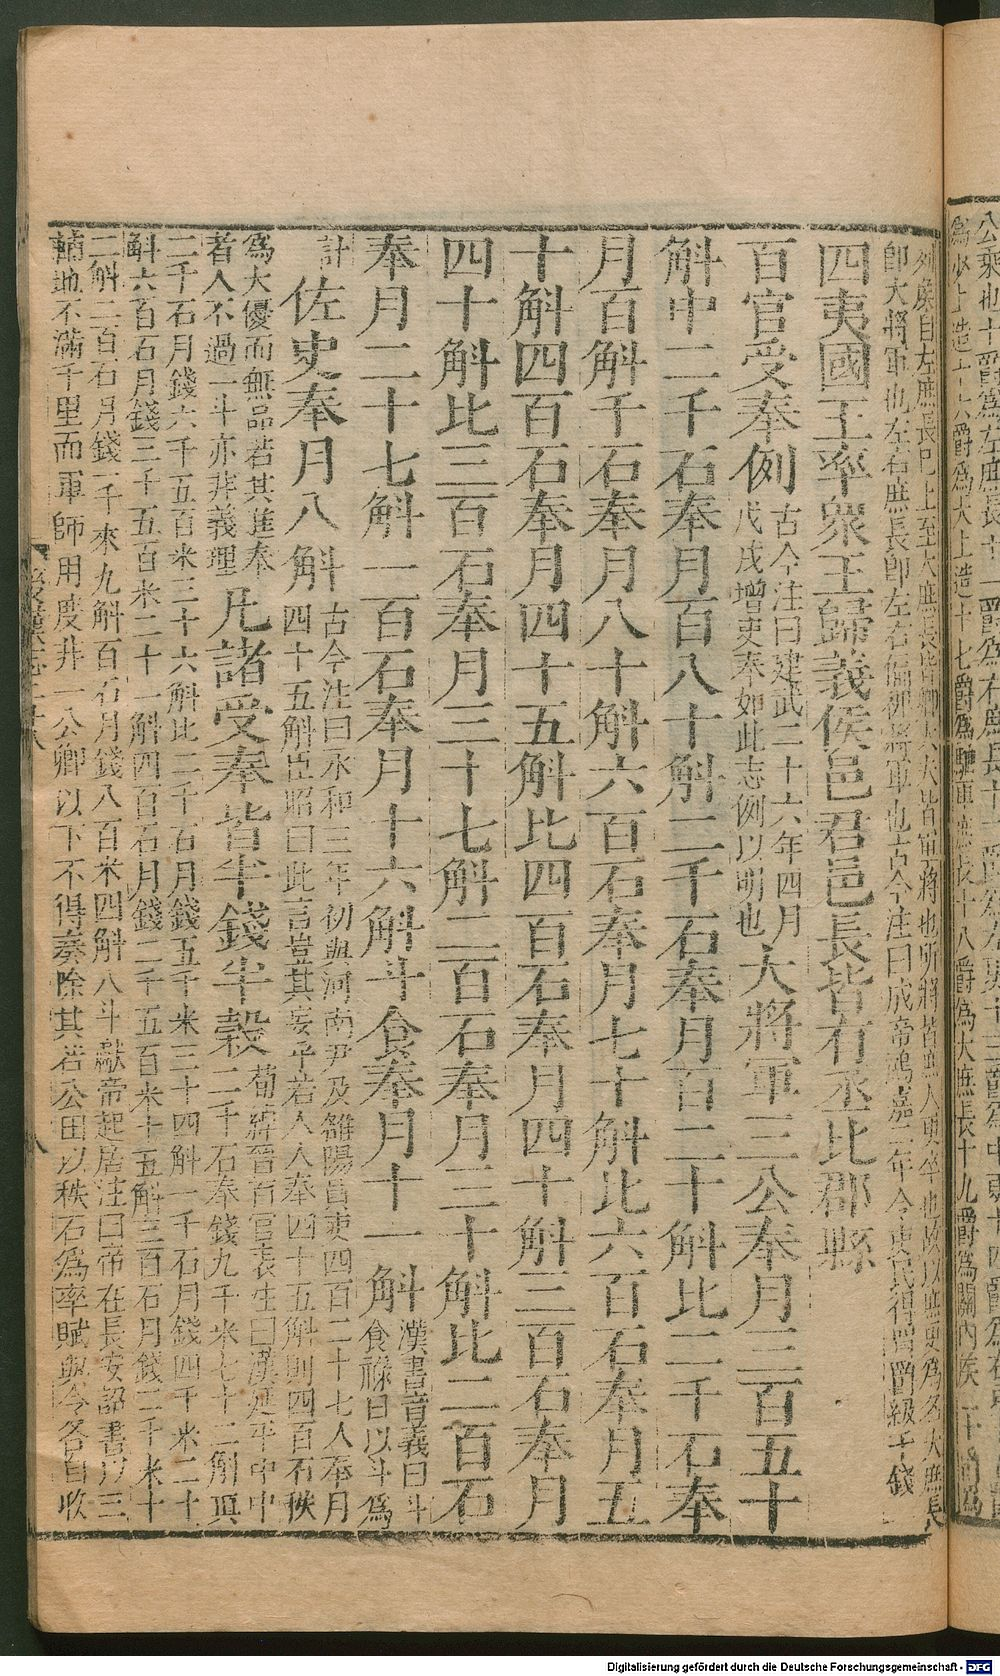 公乘也十爵爲左庶長十一爵爲右庶長十二爵爲左更十三爵爲中更十四爵爲右更
爲少上造十六爵爲大上造十七爵爲駟車庶長十八爵爲大庶長十九爵爲關內侯二十爵爲
列侯自左庶長已上至大庶長皆卿大夫皆軍將也所將皆庶人更卒也故以庶更爲名大庶長
卽大將軍也左右庶長卽左右偏裨將軍也古今注曰成帝鴻嘉二年令吏民得買爵級千錢
四夷國王率衆王歸義侯邑君邑長皆有丞比郡縣
百官受奉例 古今注曰建武二十六年四月戊戌增吏奉如此志例以明也 大將軍三公奉月三百五十
斛中二千石奉月百八十斛二千石奉月百二十斛比二千石奉
月百斛千石奉月八十斛六百石奉月七十斛比六百石奉月五
十斛四百石奉月四十五斛比四百石奉月四十斛三百石奉月
四十斛比三百石奉月三十七斛二百石奉月三十斛比二百石
奉月二十七斛一百石奉月十六斛斗食奉月十一斛 漢書音義曰斗食祿日以斗爲
計 佐史奉月八斛 古今注曰永和三年初與河南尹及雒陽員吏四百二十七人奉月
四十五斛臣昭曰此言豈其妄乎若人人奉四十五斛則四百石秩
爲大優而無品若其進奉者人不過一斗亦非義理 凡諸受奉皆半錢半穀 荀綽晉百官表生曰漢延平中中二千石奉錢九千米七十二斛眞
二千石月錢六千五百米三十六斛比二千百月錢五千米三十四斛一千石月錢四千米二十
斛六百石月錢三千五百米二十一斛四百石月錢二千五百米十五斛三百石月錢二千米十
二斛二百石月錢一千來九斛百石月錢八百米四斛八斗獻帝起居注曰帝在長安詔書以三
輔地不滿千里而軍師用度非一公卿以下不得奏除其若公田以秩石爲率賦與令各自收
後漢志二十八 八
Digitalisierung gefördert durch die Deutsche Forschungsgemeinschaft - DFG